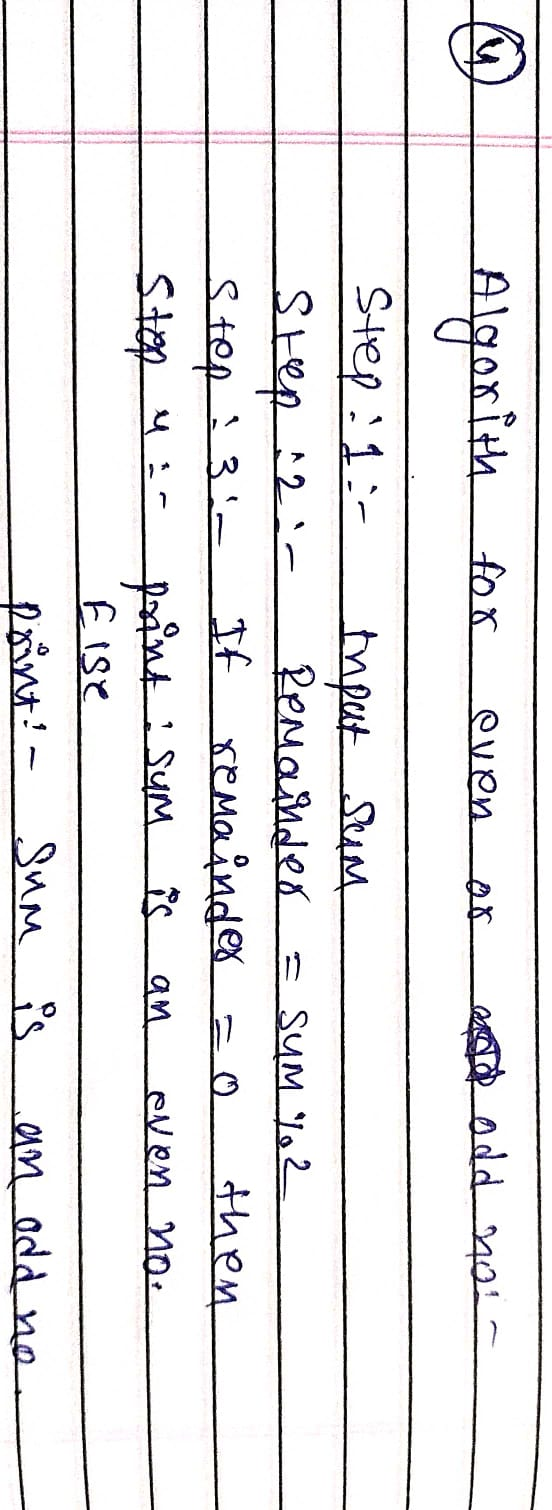 4
Algorith for even or odd no:-
Step:1:- Input Sum
Step:2:- Remainder = Sum%2
Step:3:- If remainder = 0 then
Step 4:- print: Sum is an even no.
Else
print:- Sum is an odd no.